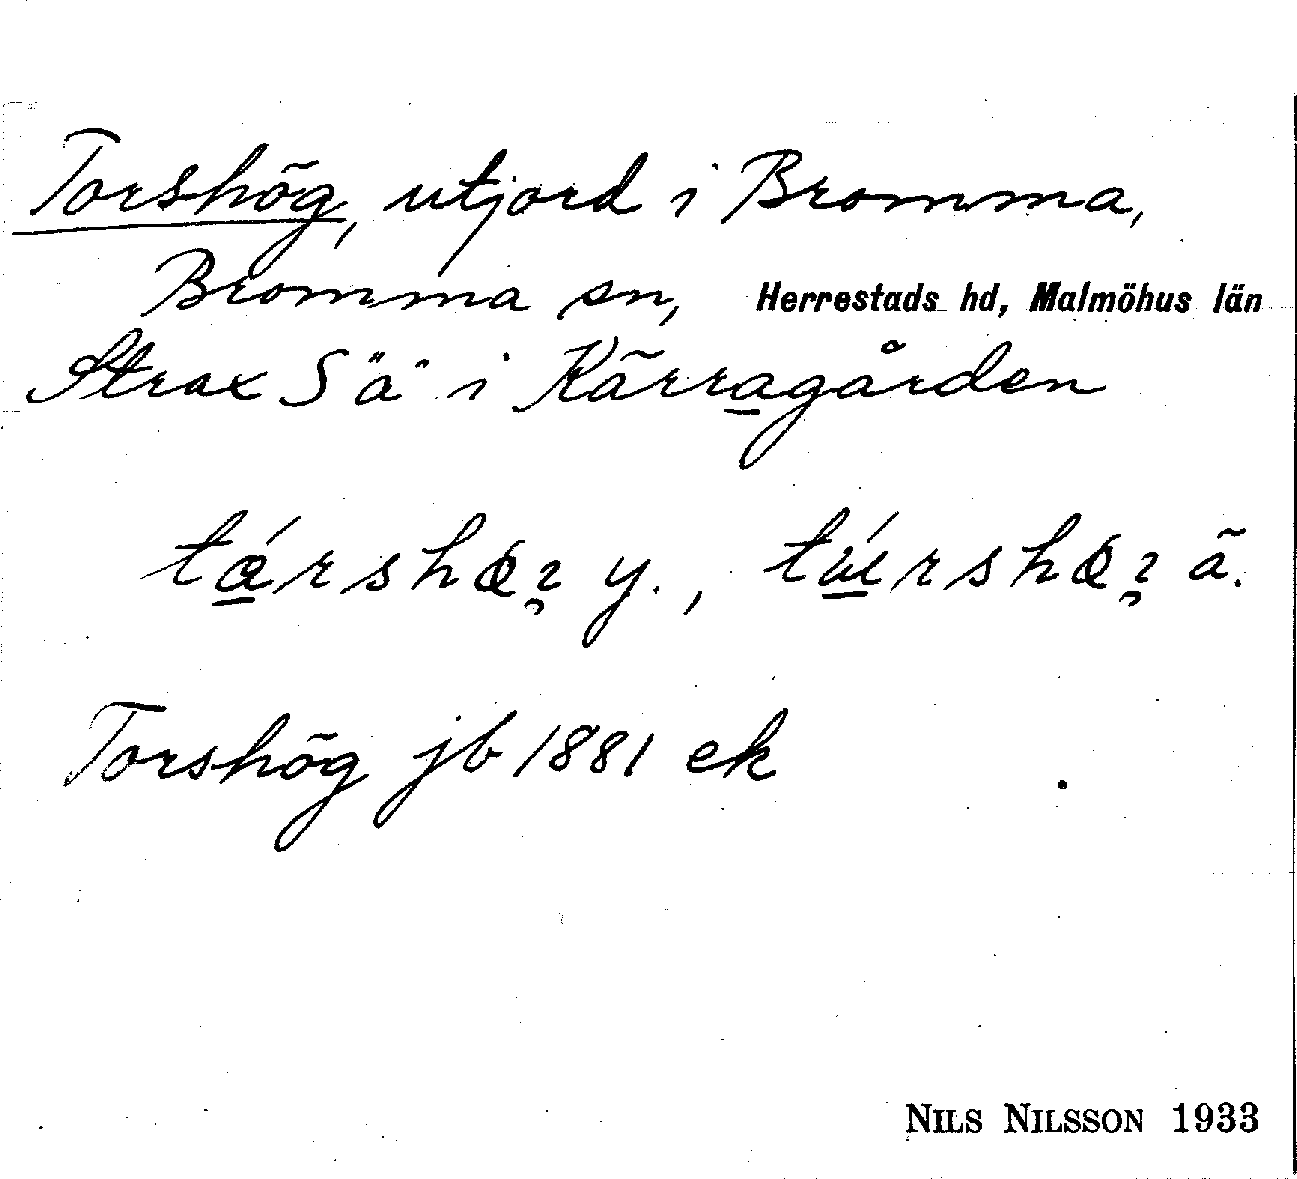 Torshög, utjord i Bromma,
Bromma sn, Herrestads hd, Malmöhus län
Strax S "a" i Kärragården
tǿrshøꝛ y., túrshøꝛ ä.
Torshög jb 1881 ek
NILS NILSSON 1933